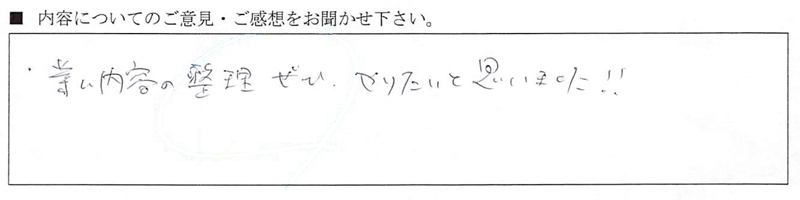 ■ 内容についてのご意見・ご感想をお聞かせ下さい。
・業ム内容の整理 ぜひ、やりたいと思いました!!